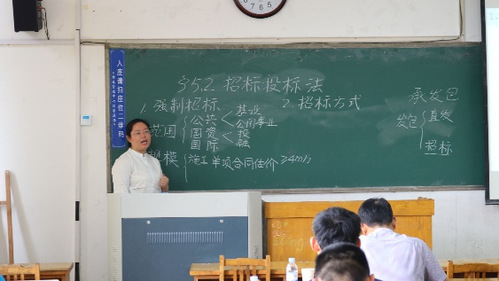 §5.2 招标投标法
1. 强制招标
范围
公共 < 基设
公用事业
国资 < 投
融
国际
规模
施工单项合同估价 ≥4m
2. 招标方式
承发包
发包 直发
招标
入座请扫座位二维码